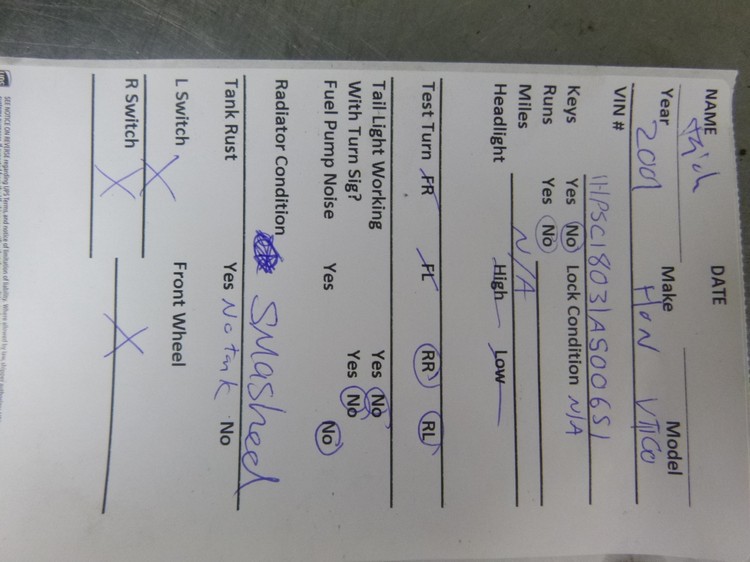 NAME DATE
Year 2001 Make HON Model VTX
VIN # 1HFSC18031A500651
Keys Yes No Lock Condition N/A
Runs Yes No
Miles N/A
Headlight High Low
Test Turn FR FL RR RL
Tail Light Working Yes No
With Turn Sig? Yes No
Fuel Pump Noise Yes No
Radiator Condition Smashed
Tank Rust Yes No tank No
L Switch X Front Wheel X
R Switch X
ups
SEE NOTICE ON REVERSE regarding UPS Terms, and notice of limitation of liability. Where allowed by law, shipper authorizes UPS